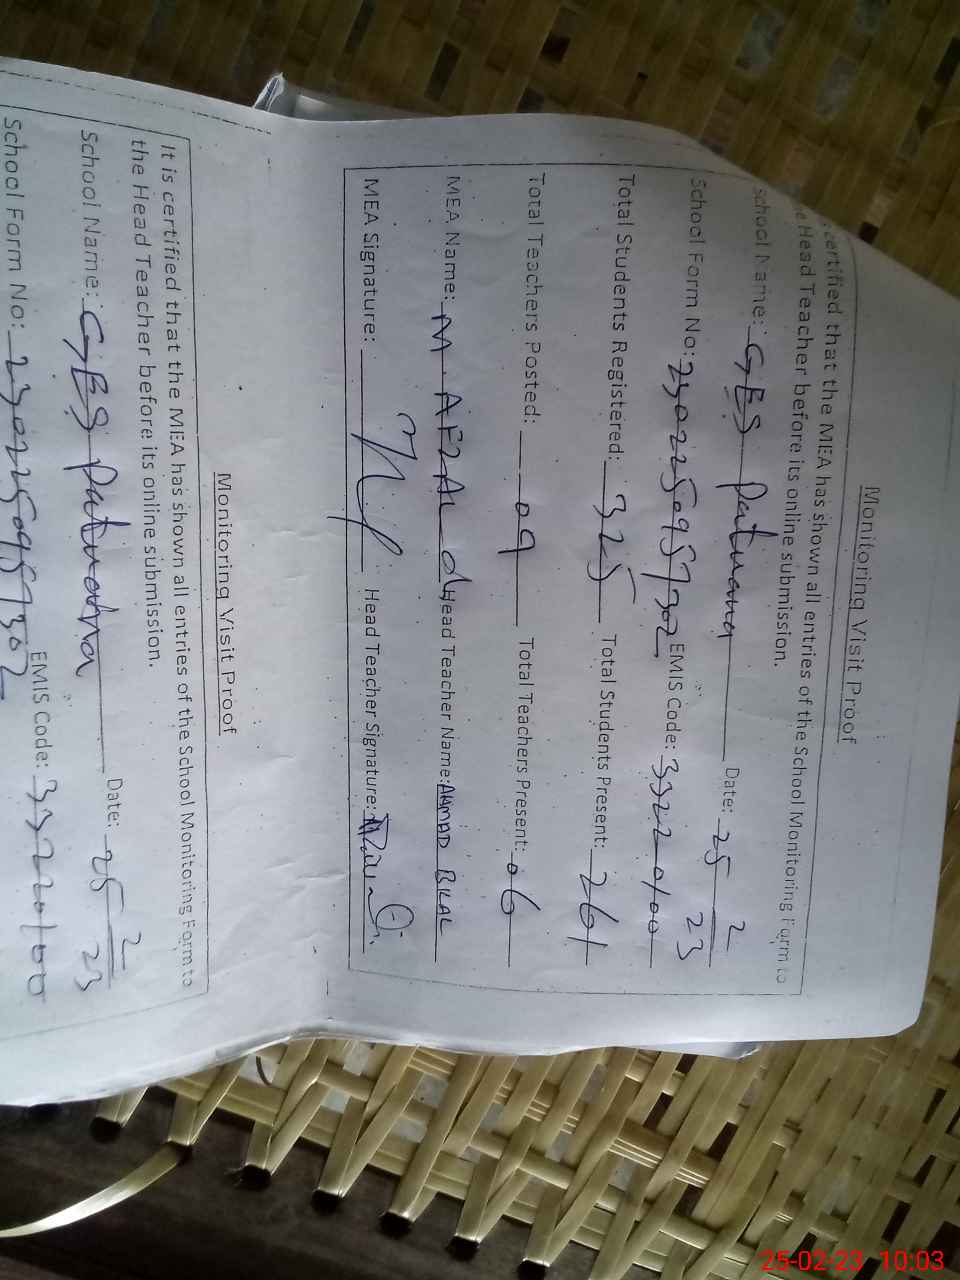 Monitoring Visit Proof
certified that the MEA has shown all entries of the School Monitoring Form to
e Head Teacher before its online submission.
School Name: GES Patuana Date: 25/2/23
School Form No: 2302250957302 EMIS Code: 33220100
Total Students Registered: 325 Total Students Present: 261
Total Teachers Posted: 09 Total Teachers Present: 06
MEA Name: M. AFZAL Head Teacher Name: AHMAD BILAL
MEA Signature: Head Teacher Signature:
Monitoring Visit Proof
It is certified that the MEA has shown all entries of the School Monitoring Form to
the Head Teacher before its online submission.
School Name: GES Patuana Date: 25/2/23
School Form No: 2302250957302 EMIS Code: 33220100
25-02-23 10:03